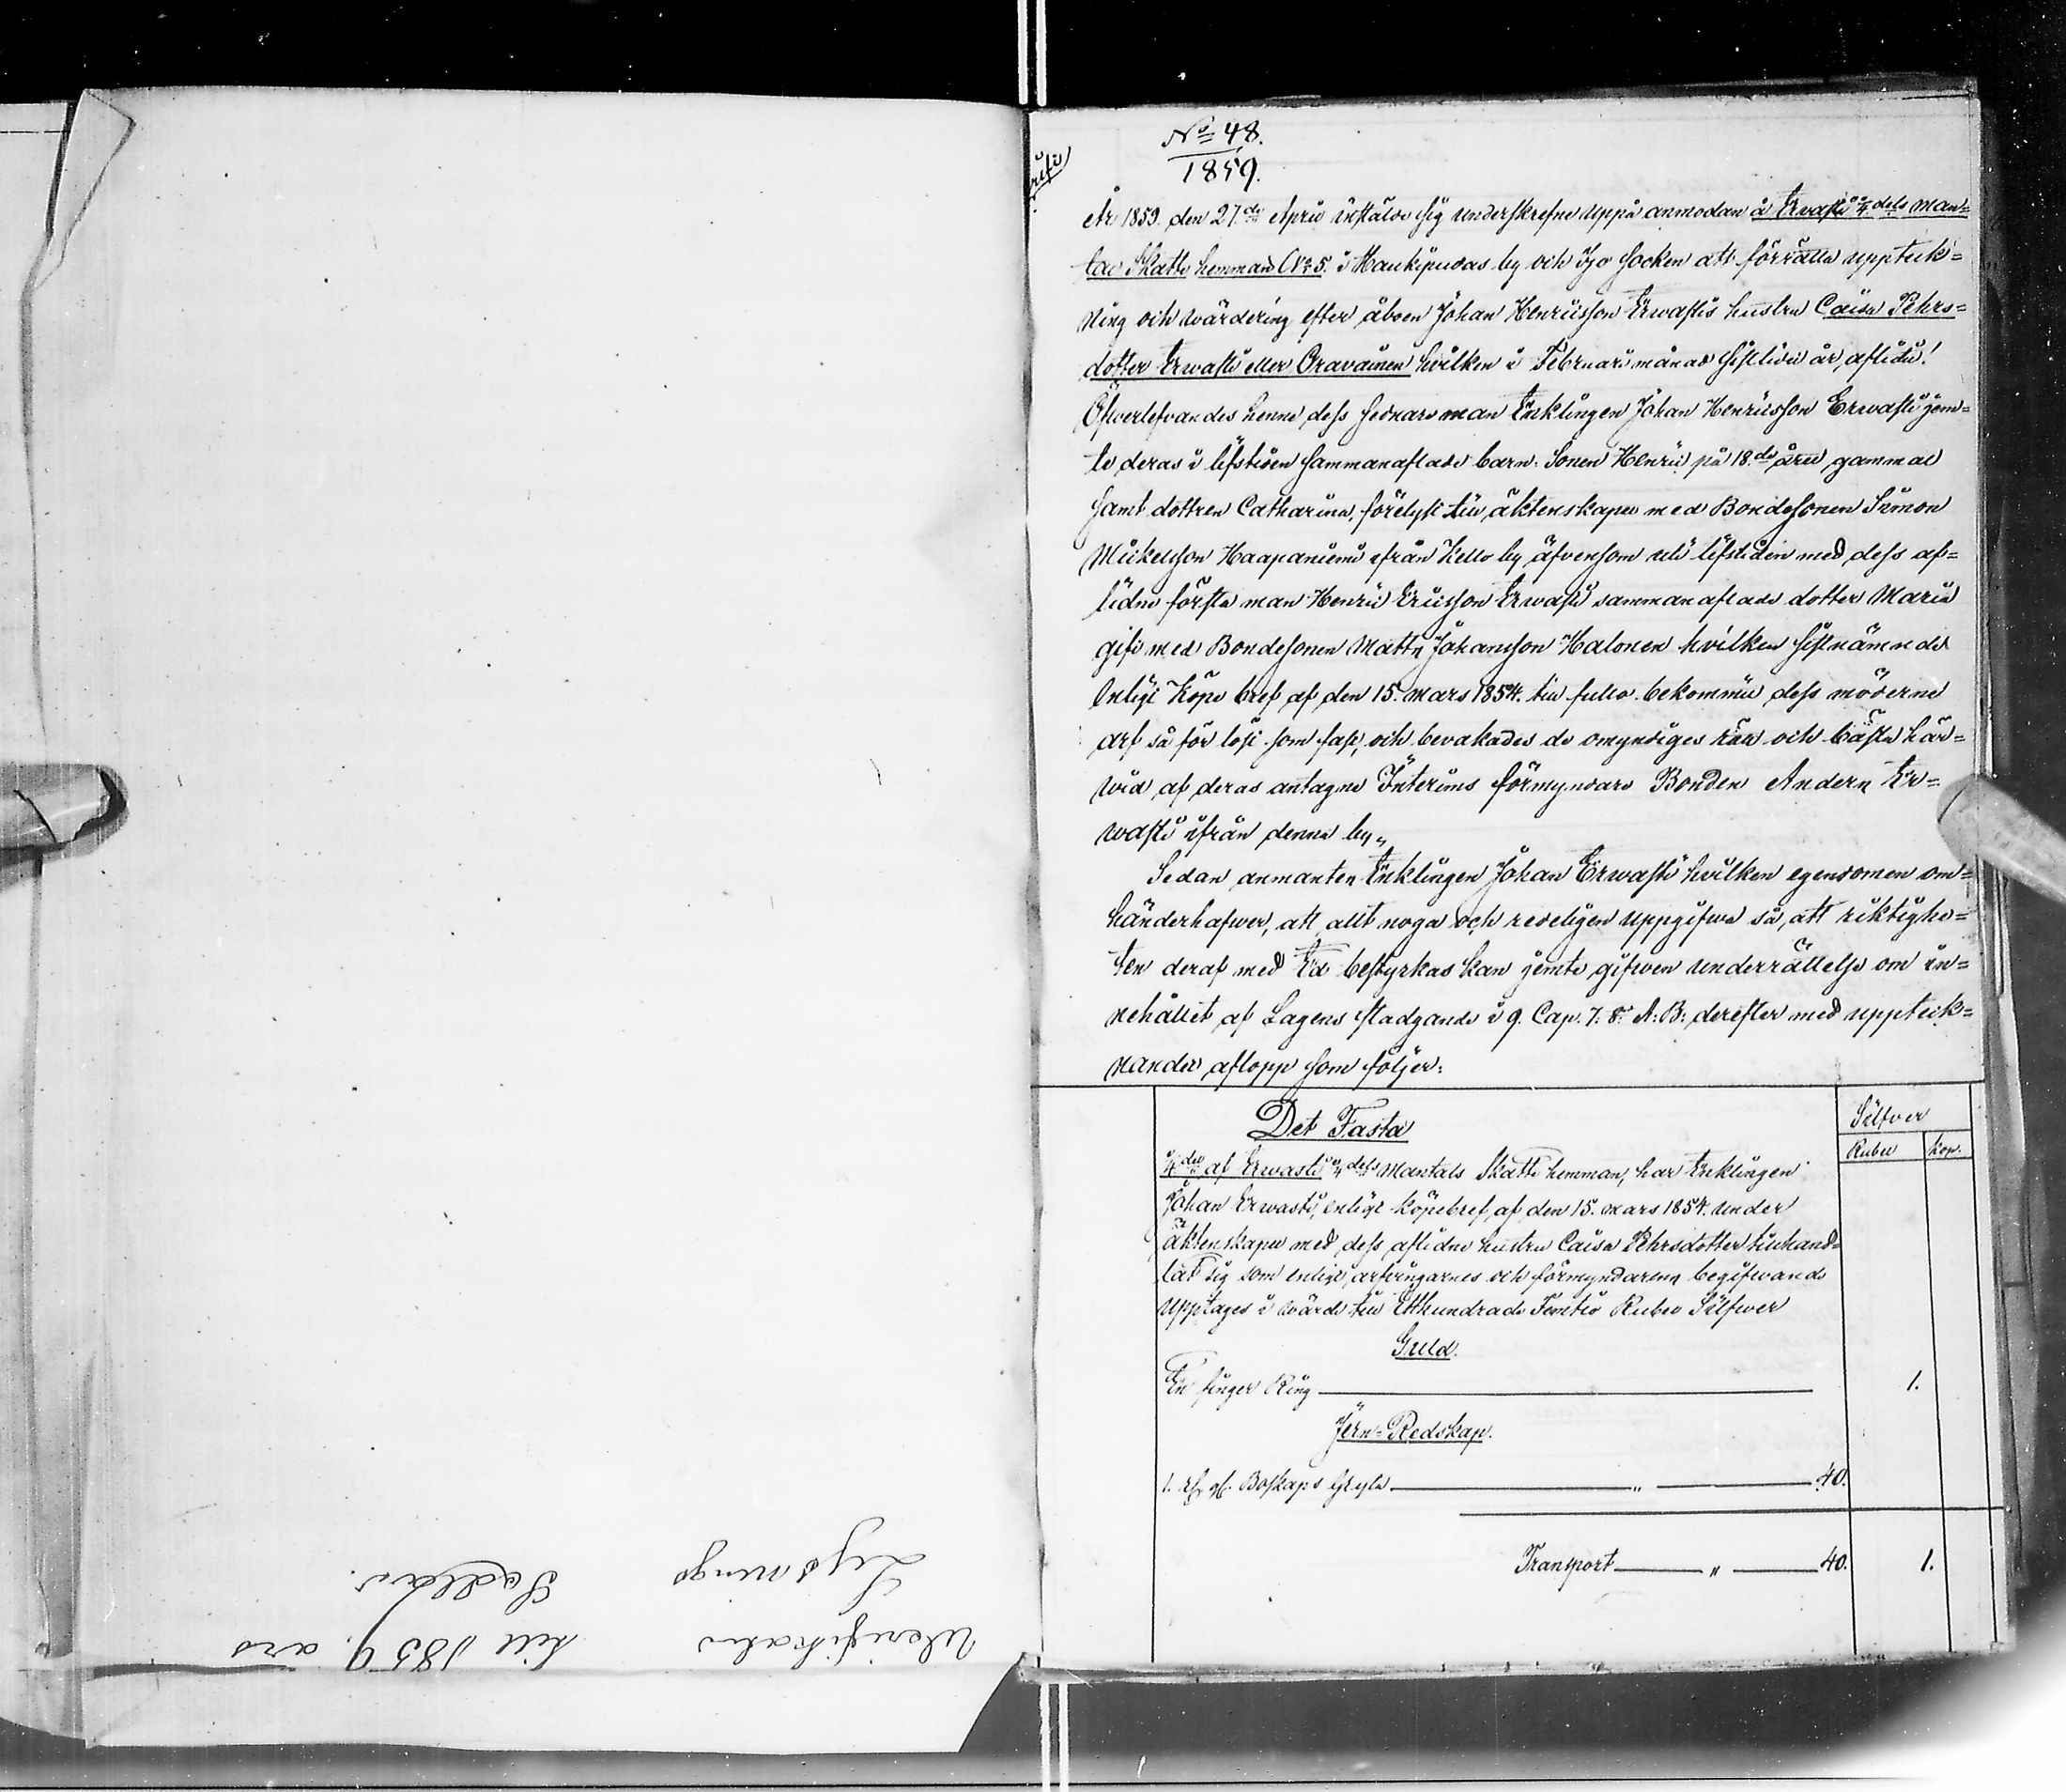 No 48.
1859.
År 1859. den 27.de April instälde sig underskrefne uppå anmodan å Erwasti 1/4 dels man=
tal Skatte hemman No 5. i Haukipudas by och Ijo Socken att förrätta uppteck=
ning och wärdering efter åboen Johan Henricsson Erwastis hustru Caisa Pehrs=
dotter Erwasti eller Oravainen hvilken i Februari månad sistlidit år, aflidit!
Öfverlefvandes henne dess sednare man Enklingen Johan Henricsson Erwasti jem=
te deras i lifstiden sammanaflade barn: Sonen Henric på 18.de året gammal
samt dottren Catharina, förelyst till äktenskapet med Bondesonen Simon
Mickelsson Haapaniemi ifrån Kello by äfvensom uti lifstiden med dess af=
lidne första man Henric Ericsson Erwasti sammanaflade dotter Maria
gift med Bondesonen Matts Johansson Halonen hvilken sistnämnde
enligt Köpe bref af den 15. Mars 1854. till fullo bekommit dess möderne
arf så för löst som fast, och bevakades de omyndiges rätt och bästa här=
wid af deras antagne Interims förmyndare Bonden Anders Er=
wasti ifrån denna by„
Sedan anmanten Enklingen Johan Erwasti hvilken egendomen om=
händerhafver, att allt noga och redeligen uppgifwa så, att riktighe=
ten deraf med Ed bestyrkas kan jemte gifwen underrättelse om in=
nehållet af Lagens stadgande i 9. Cap. 7. §. Ä: B: derefter med uppteck=
nandet aflopp som följer:
Det Fasta
Silfver
Rubel kop.
1/4 del af Erwasti 1/4 dels Mantals Skatte hemman, har Enklingen
Johan Erwasti, enligt köpebref af den 15. Mars 1854. under
äktenskapet med dess aflidne hustru Caisa Pehrsdotter tillhand=
lat sig som enligt arfvingarnes och förmyndarens begifwande
upptages i wärde till Etthundrade Femtio Rubel Silfwer
Guld.
En finger Ring 1.
Jern=Redskap.
1. Boskaps Gryta „ 40.
Transport „ 40. 1.
Verifikater till 1859. års
Lysnings Sedlar.